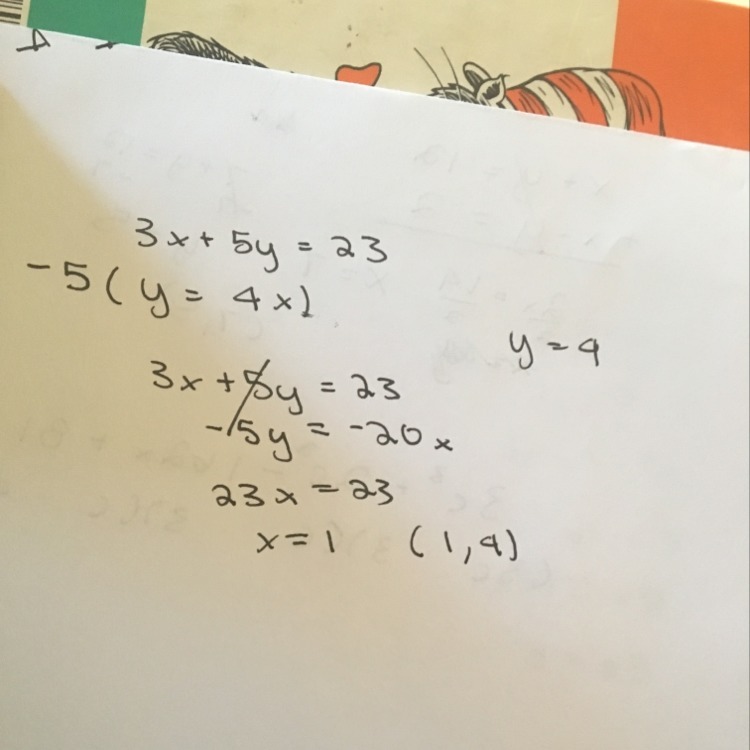 3x + 5y = 23
-5(y = 4x)
y = 4
3x + 5y = 23
-5y = -20x
23x = 23
x = 1 (1,4)